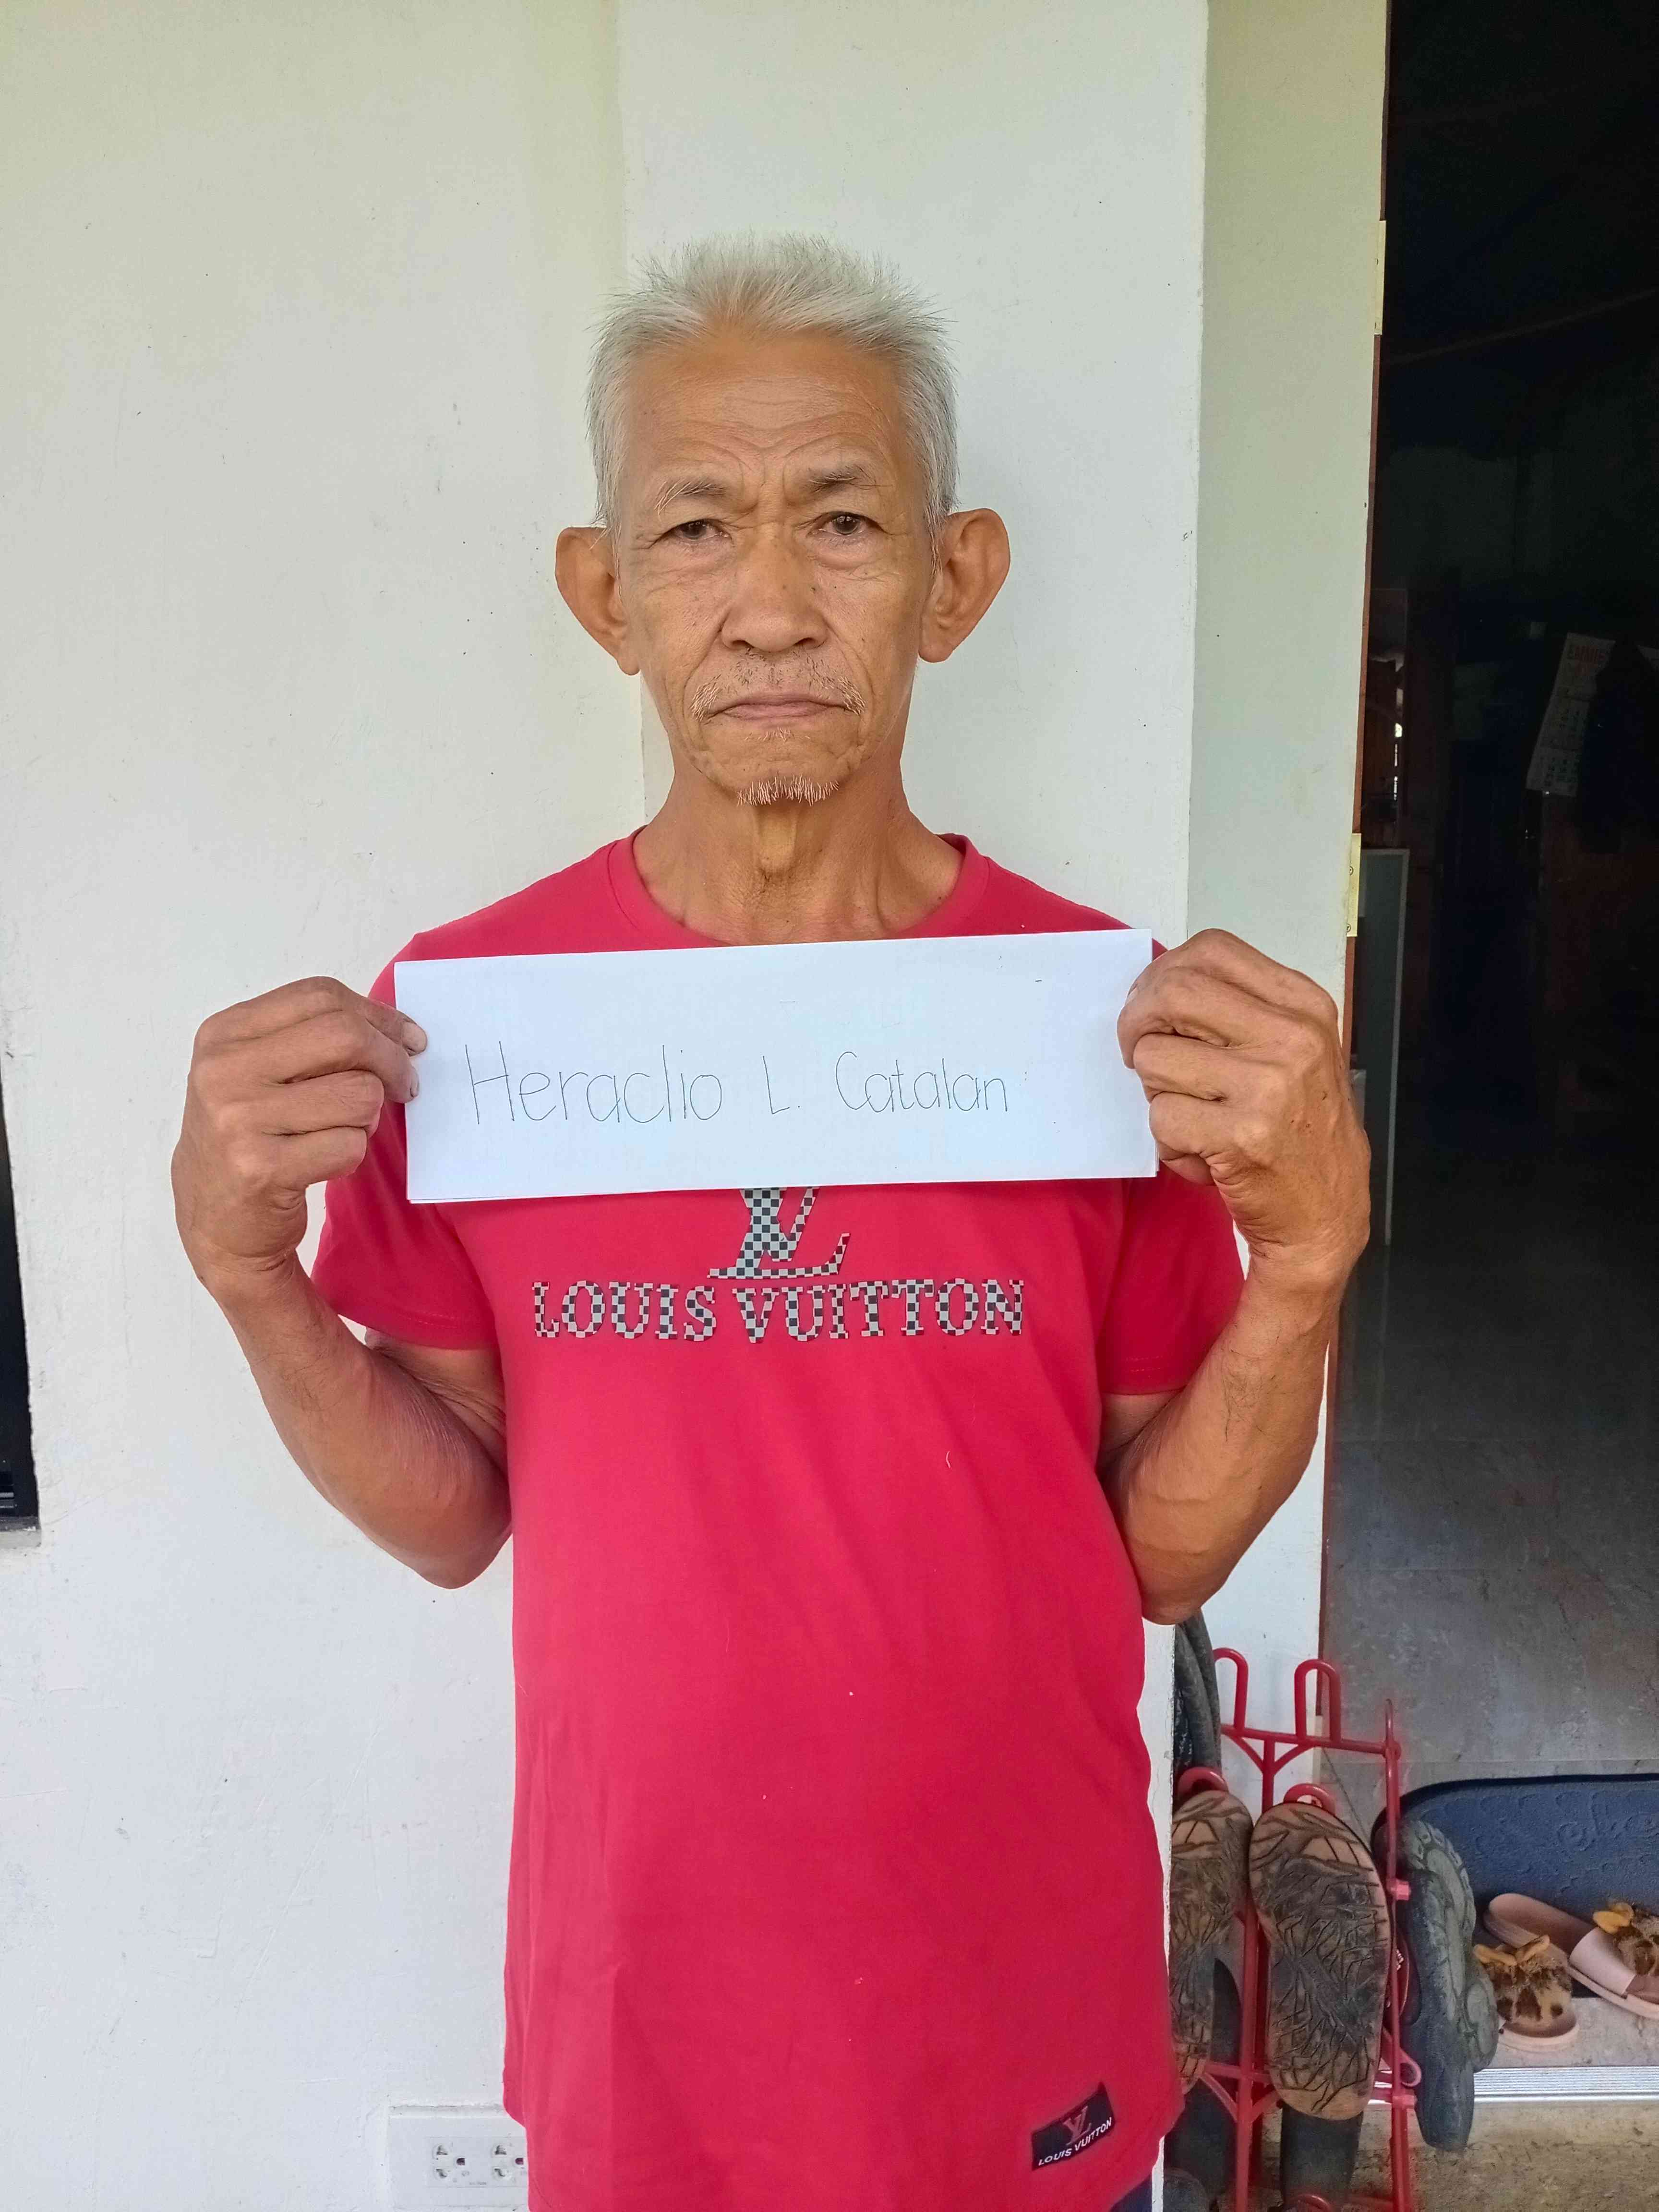 Heraclio L. Catalan
LV
LOUIS VUITTON
LV
LOUIS VUITTON